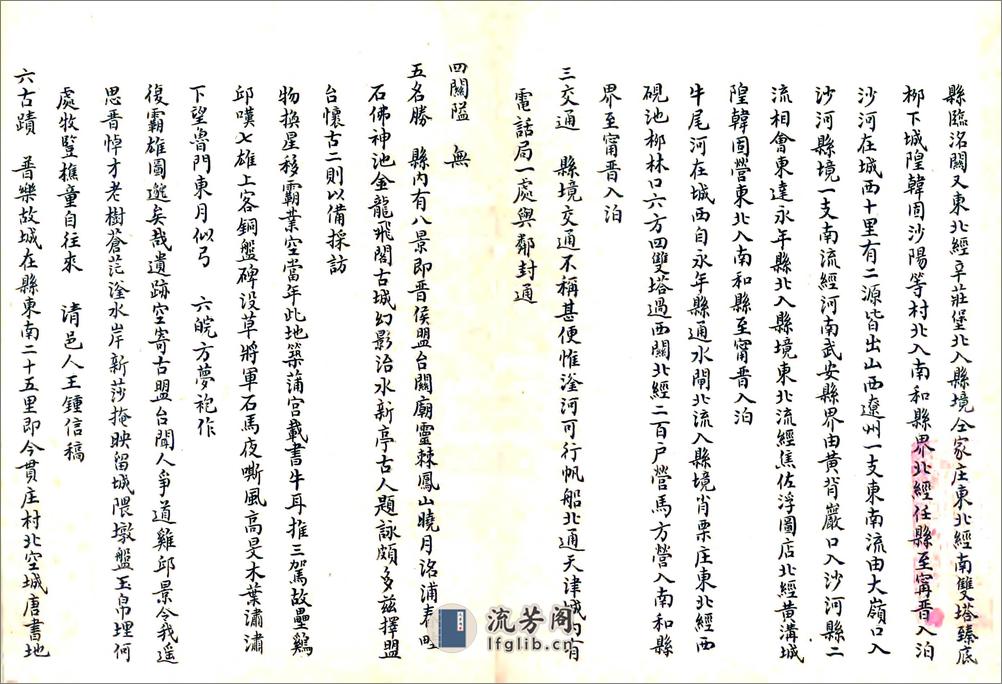 縣臨洺關又東北經卓莊堡北入縣境仝家庄東北經南雙塔臻底
柳下城隍韓固沙陽等村北入南和縣界北經任縣至甯晉入泊
沙河在城西十里有二源皆出山西遼州一支東南流由大嶺口入
沙河縣境一支南流經河南武安縣界由黃背巖口入沙河縣二
流相會東達永年縣北入縣境東北流經焦佐浮圖店北經黃溝城
隍韓固營東北入南和縣至甯晉入泊
牛尾河在城西自永年縣通水閘北流入縣境肖栗庄東北經西
硯池柳林口六方四雙塔過西關北經二百户營馬方營入南和縣
界至甯晉入泊
三交通 縣境交通不稱甚便惟滏河可行帆船北通天津城內有
電話局一處與鄰封通
四關隘 無
五名勝 縣內有八景即晋侯盟台關廟靈棘鳳山曉月洺浦春町
石佛神池金龍飛閣古城幻影治水新亭古人題詠頗多兹擇盟
台懷古二則以備採訪
物換星移霸業空當年此地築蒲宫載書牛耳推三駕故壘鷄
邱嘆七雄上客銅盤碑没草將軍石馬夜嘶風高旻木葉潚潚
下望魯門東月似弓 六皖方夢袍作
復霸雄圖邈矣哉遺跡空寄古盟台聞人爭道雞邱景令我遥
思晋悼才老樹蒼茫滏水岸新莎掩映留城隈墩盤玉帛埋何
處牧豎樵童自往來 清邑人王鍾信稿
六古蹟 普樂故城在縣東南二十五里即今貫庄村北空城唐書地
流芳阁
lfglib.com